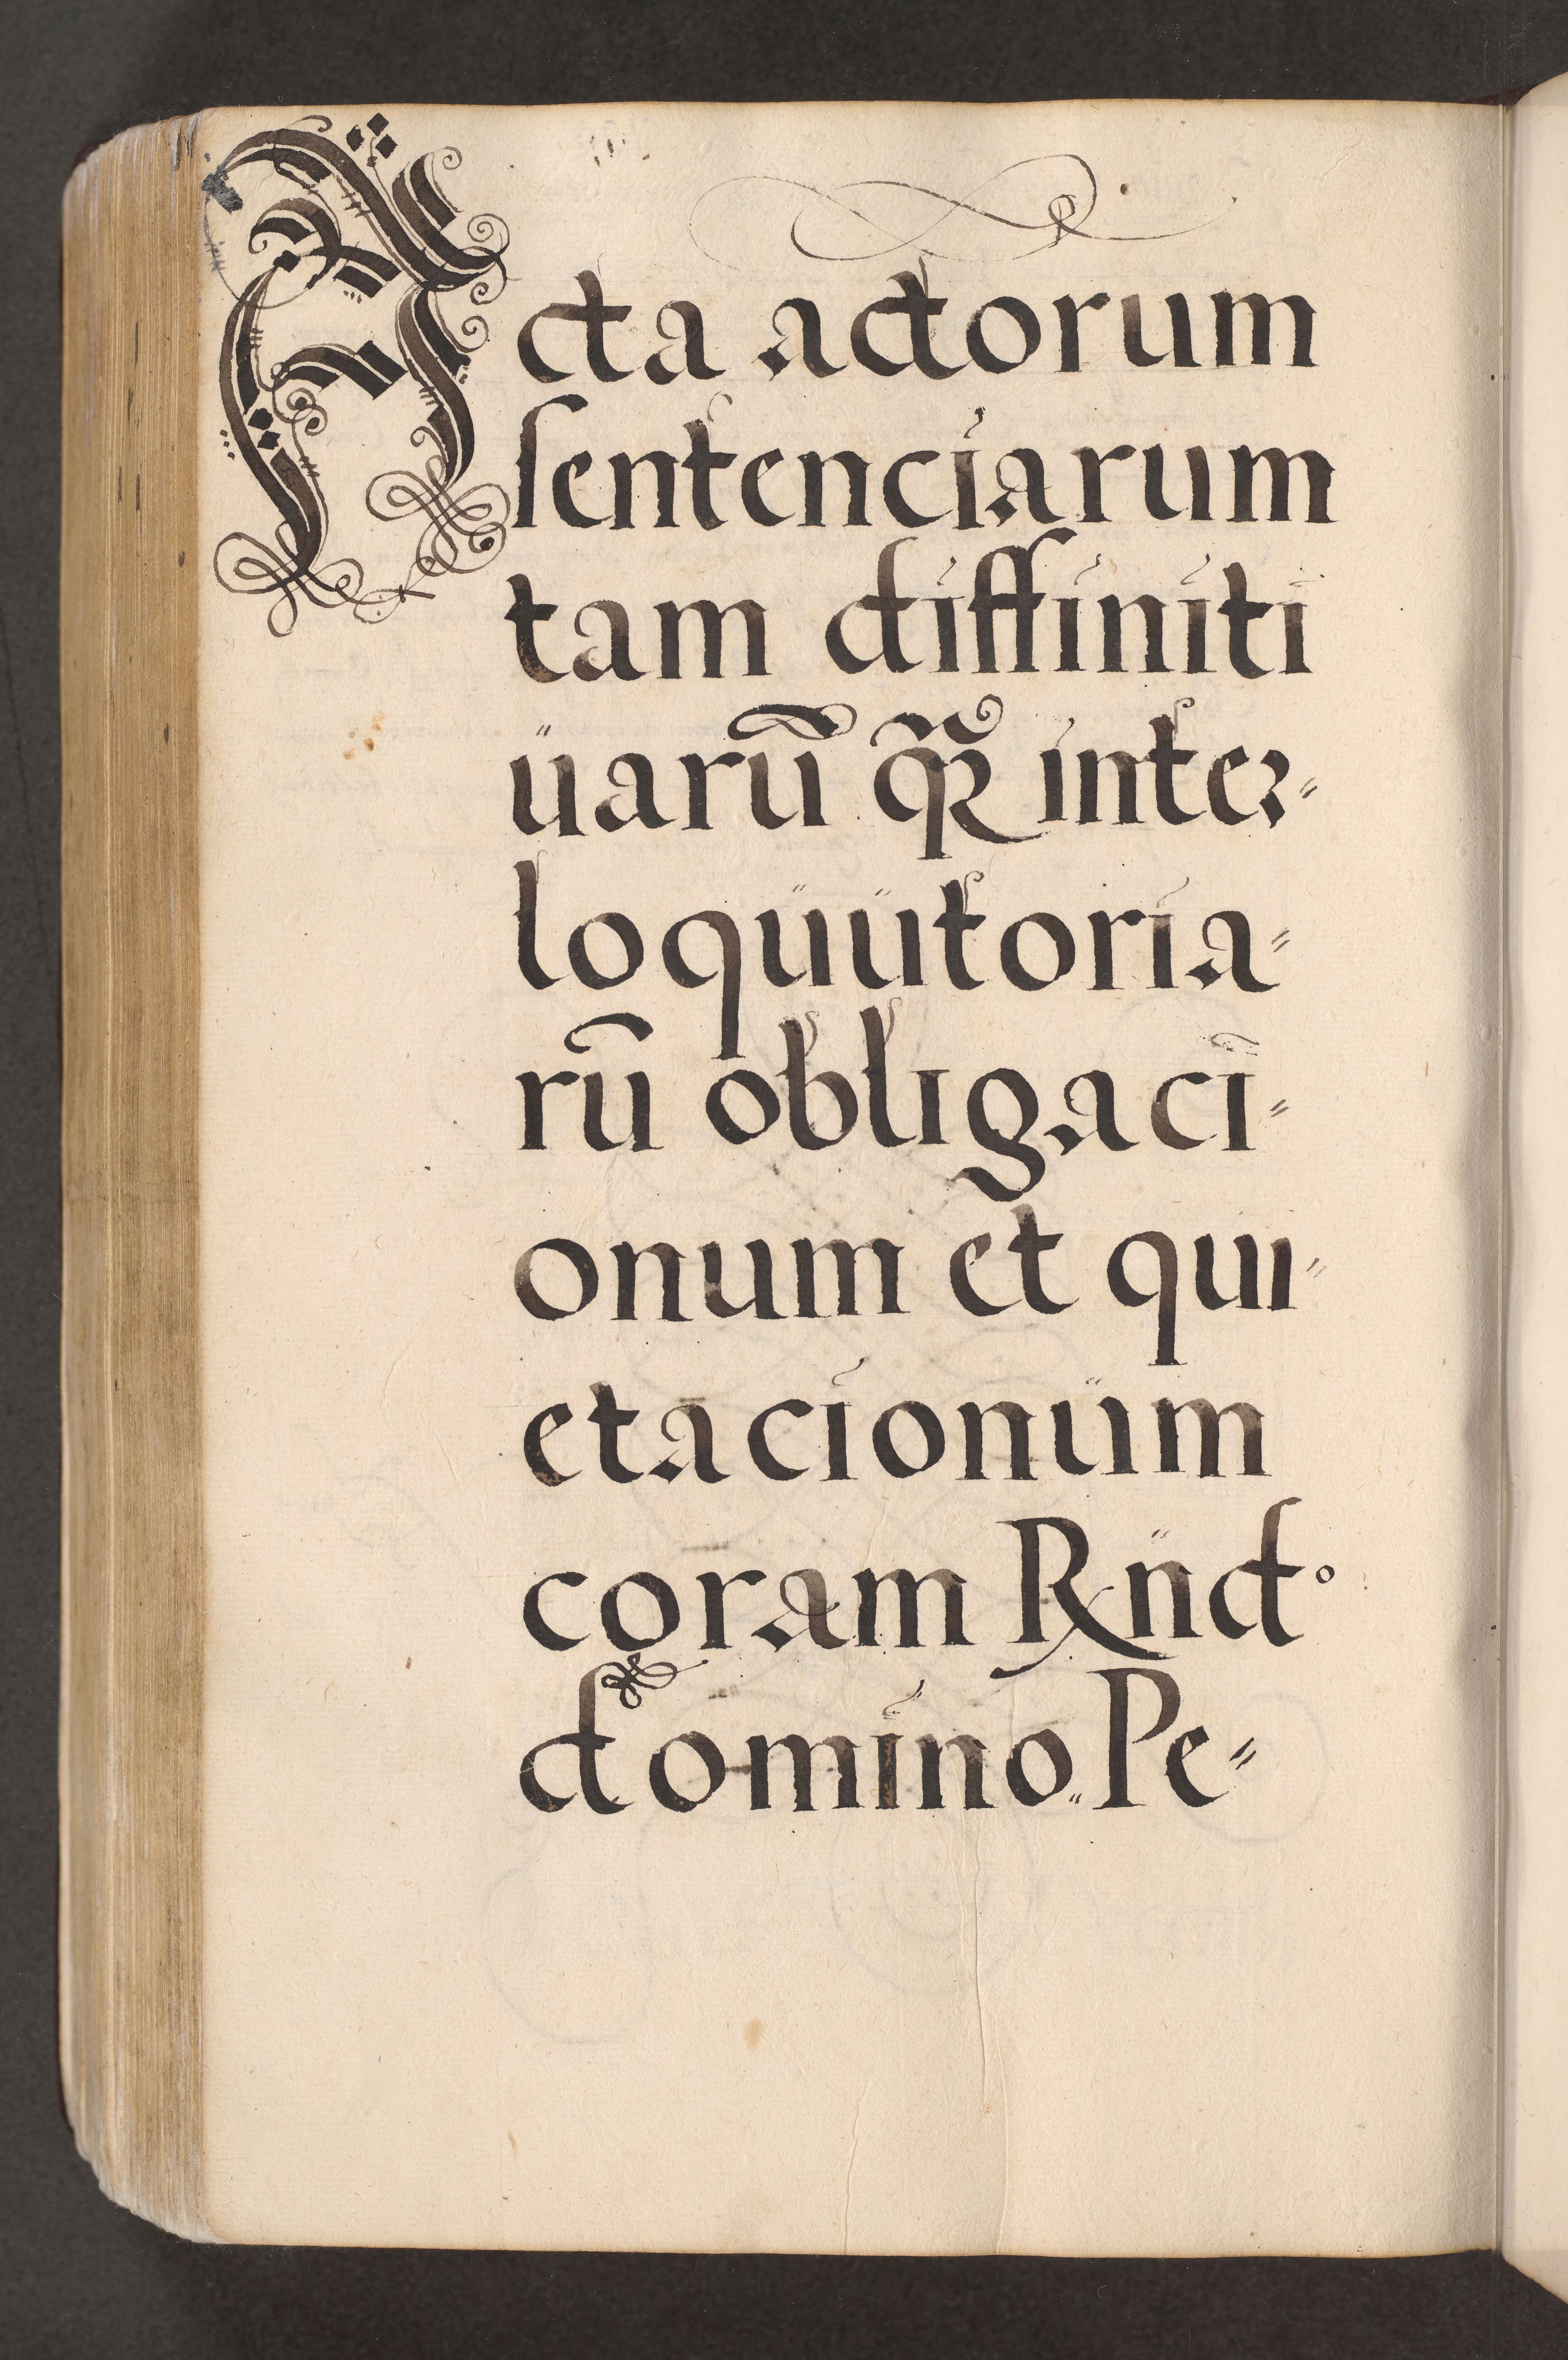 Acta actorum
sentenciarum
tam diffiniti
üarū qꝫ inter-
loqüütoria-
rū obligaci-
onum et qui-
etacionüm
coram Rnd°
domino Pe-